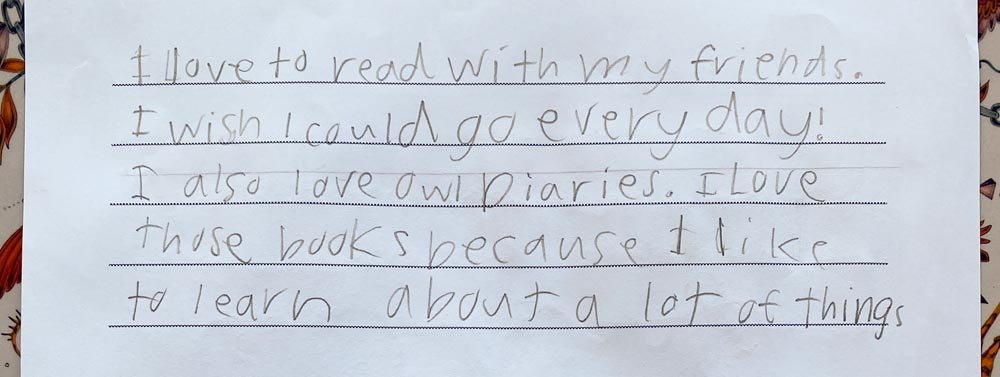 I love to read with my friends.
I wish I could go every day!
I also love owl Diaries. I Love
those books because I like
to learn about a lot of things